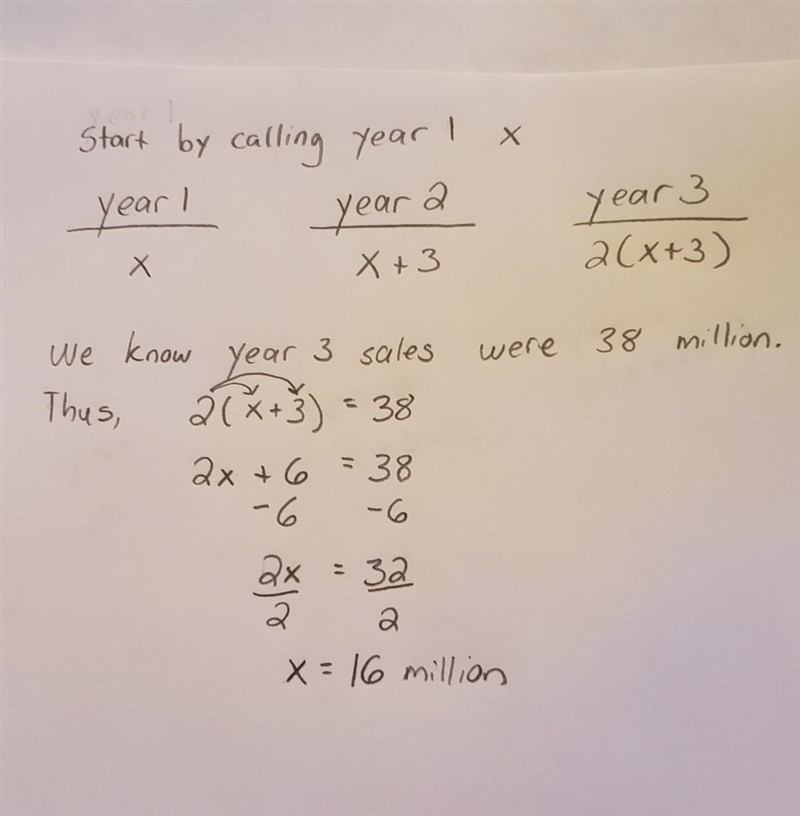 Start by calling year 1 x
year 1 year 2 year 3
x x + 3 2(x+3)
We know year 3 sales were 38 million.
Thus, 2(x+3) = 38
2x + 6 = 38
-6 -6
2x = 32
2 2
x = 16 million